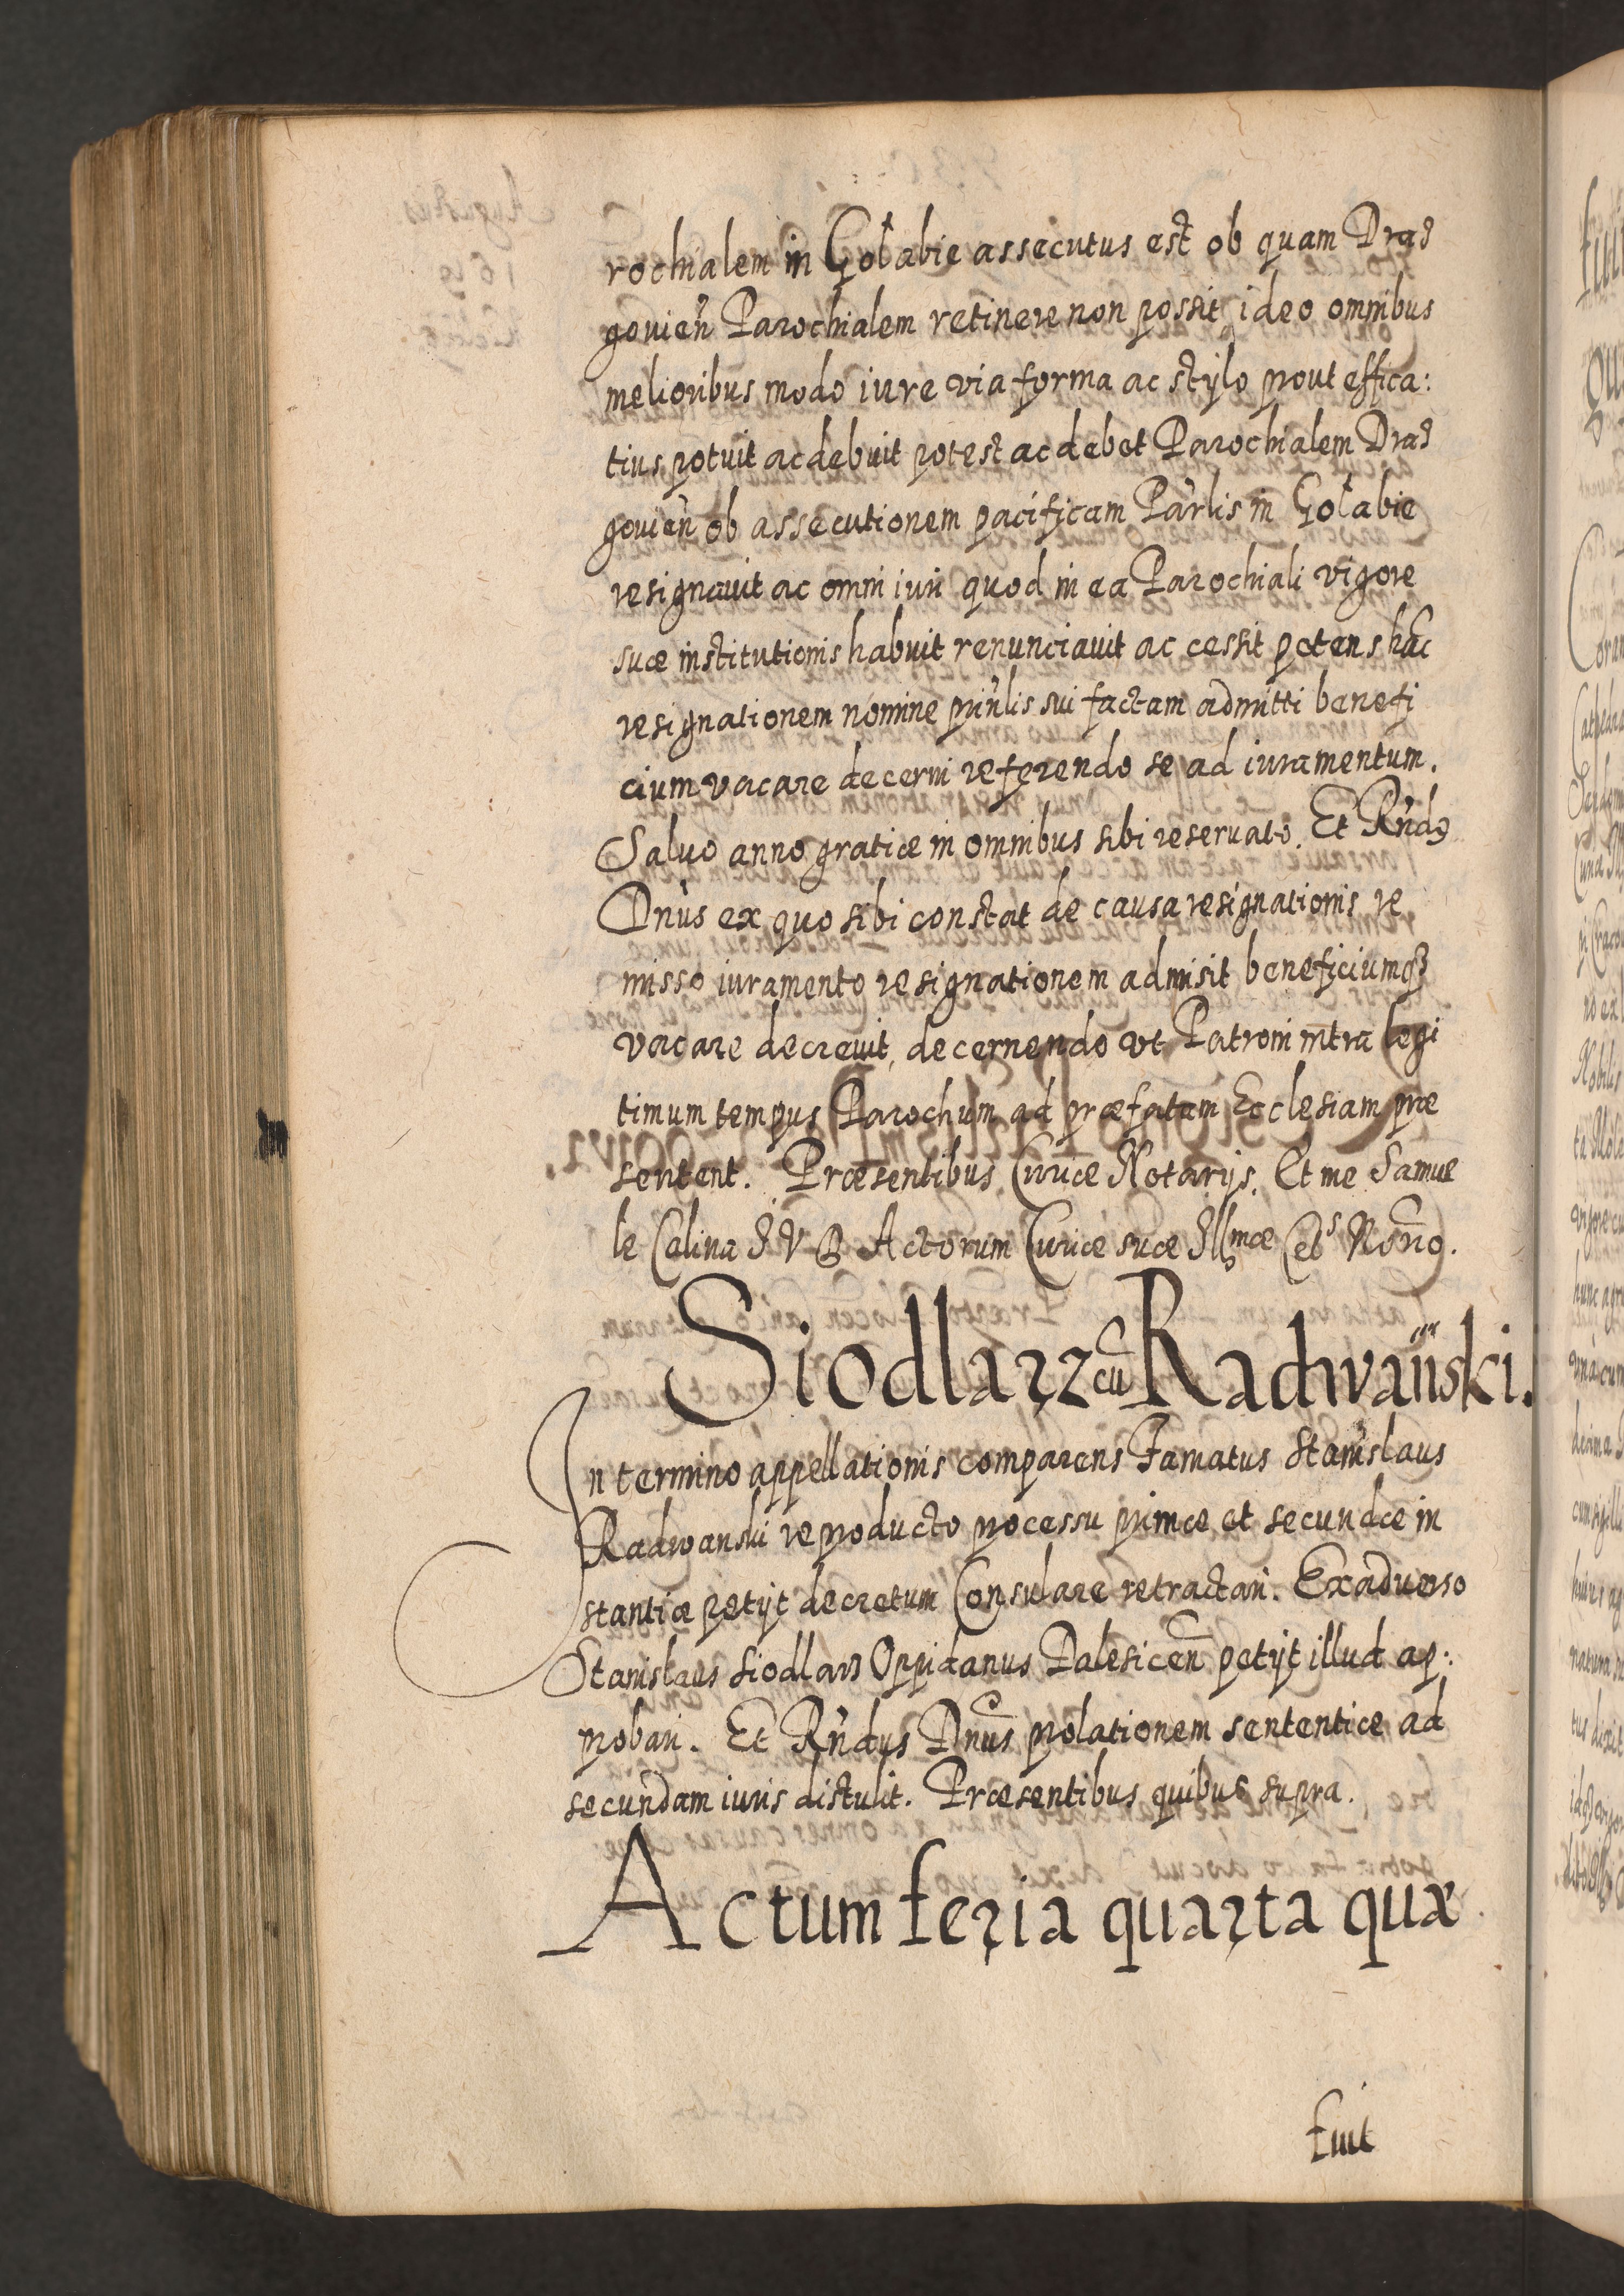 rochialem in Gołabie assecutus est ob quam Dras
gouień Parochialem retinere non possit, ideo omnibus
melioribus modo iure via forma ac stylo prout effica:
tius potuit ac debuit potest ac debet Parochialem Dras
gouień ob assecutionem pacificam Parlis in Gołabie
resignavit ac omni iuri quod in ea Parochiali vigore
suæ institutionis habuit renunciauit ac cessit petens hāc
resignationem nomine prinlis sui factam admitti benefi
cium vacare decerni referendo se ad iuramentum.
Saluo anno gratiæ in omnibus sibi reseruato. Et Rńdꝯ
Dńus ex quo sibi constat de causa resignationis re
misso iuramento resignationem admisit beneficiumqꝫ
vacare decrevit, decernendo vt Patroni intra legi
timum tempus Parochum ad præfatam Ecclesiam præ
sentent. Præsentibus Curiæ Notarijs. Et me Samue
le Calina I V B Actorum Curiæ suæ Illmæ Cels Notrio.
Siodlarz cū Radwański.
In termino appellationis comparens Famatus Stanislaus
Radwanski reproducto processu primæ et secundæ in
stantiæ petijt decretum Consulare retractari. Ex aduerso
Stanislaus Siodlarz Oppidanus Dalesicen̄ petijt illud ap:
probari. Et Rńdus Dnus prolationem sententiæ ad
secundam iuris distulit. Præsentibus quibus supra.
Actum feria quarta quæ
fuit